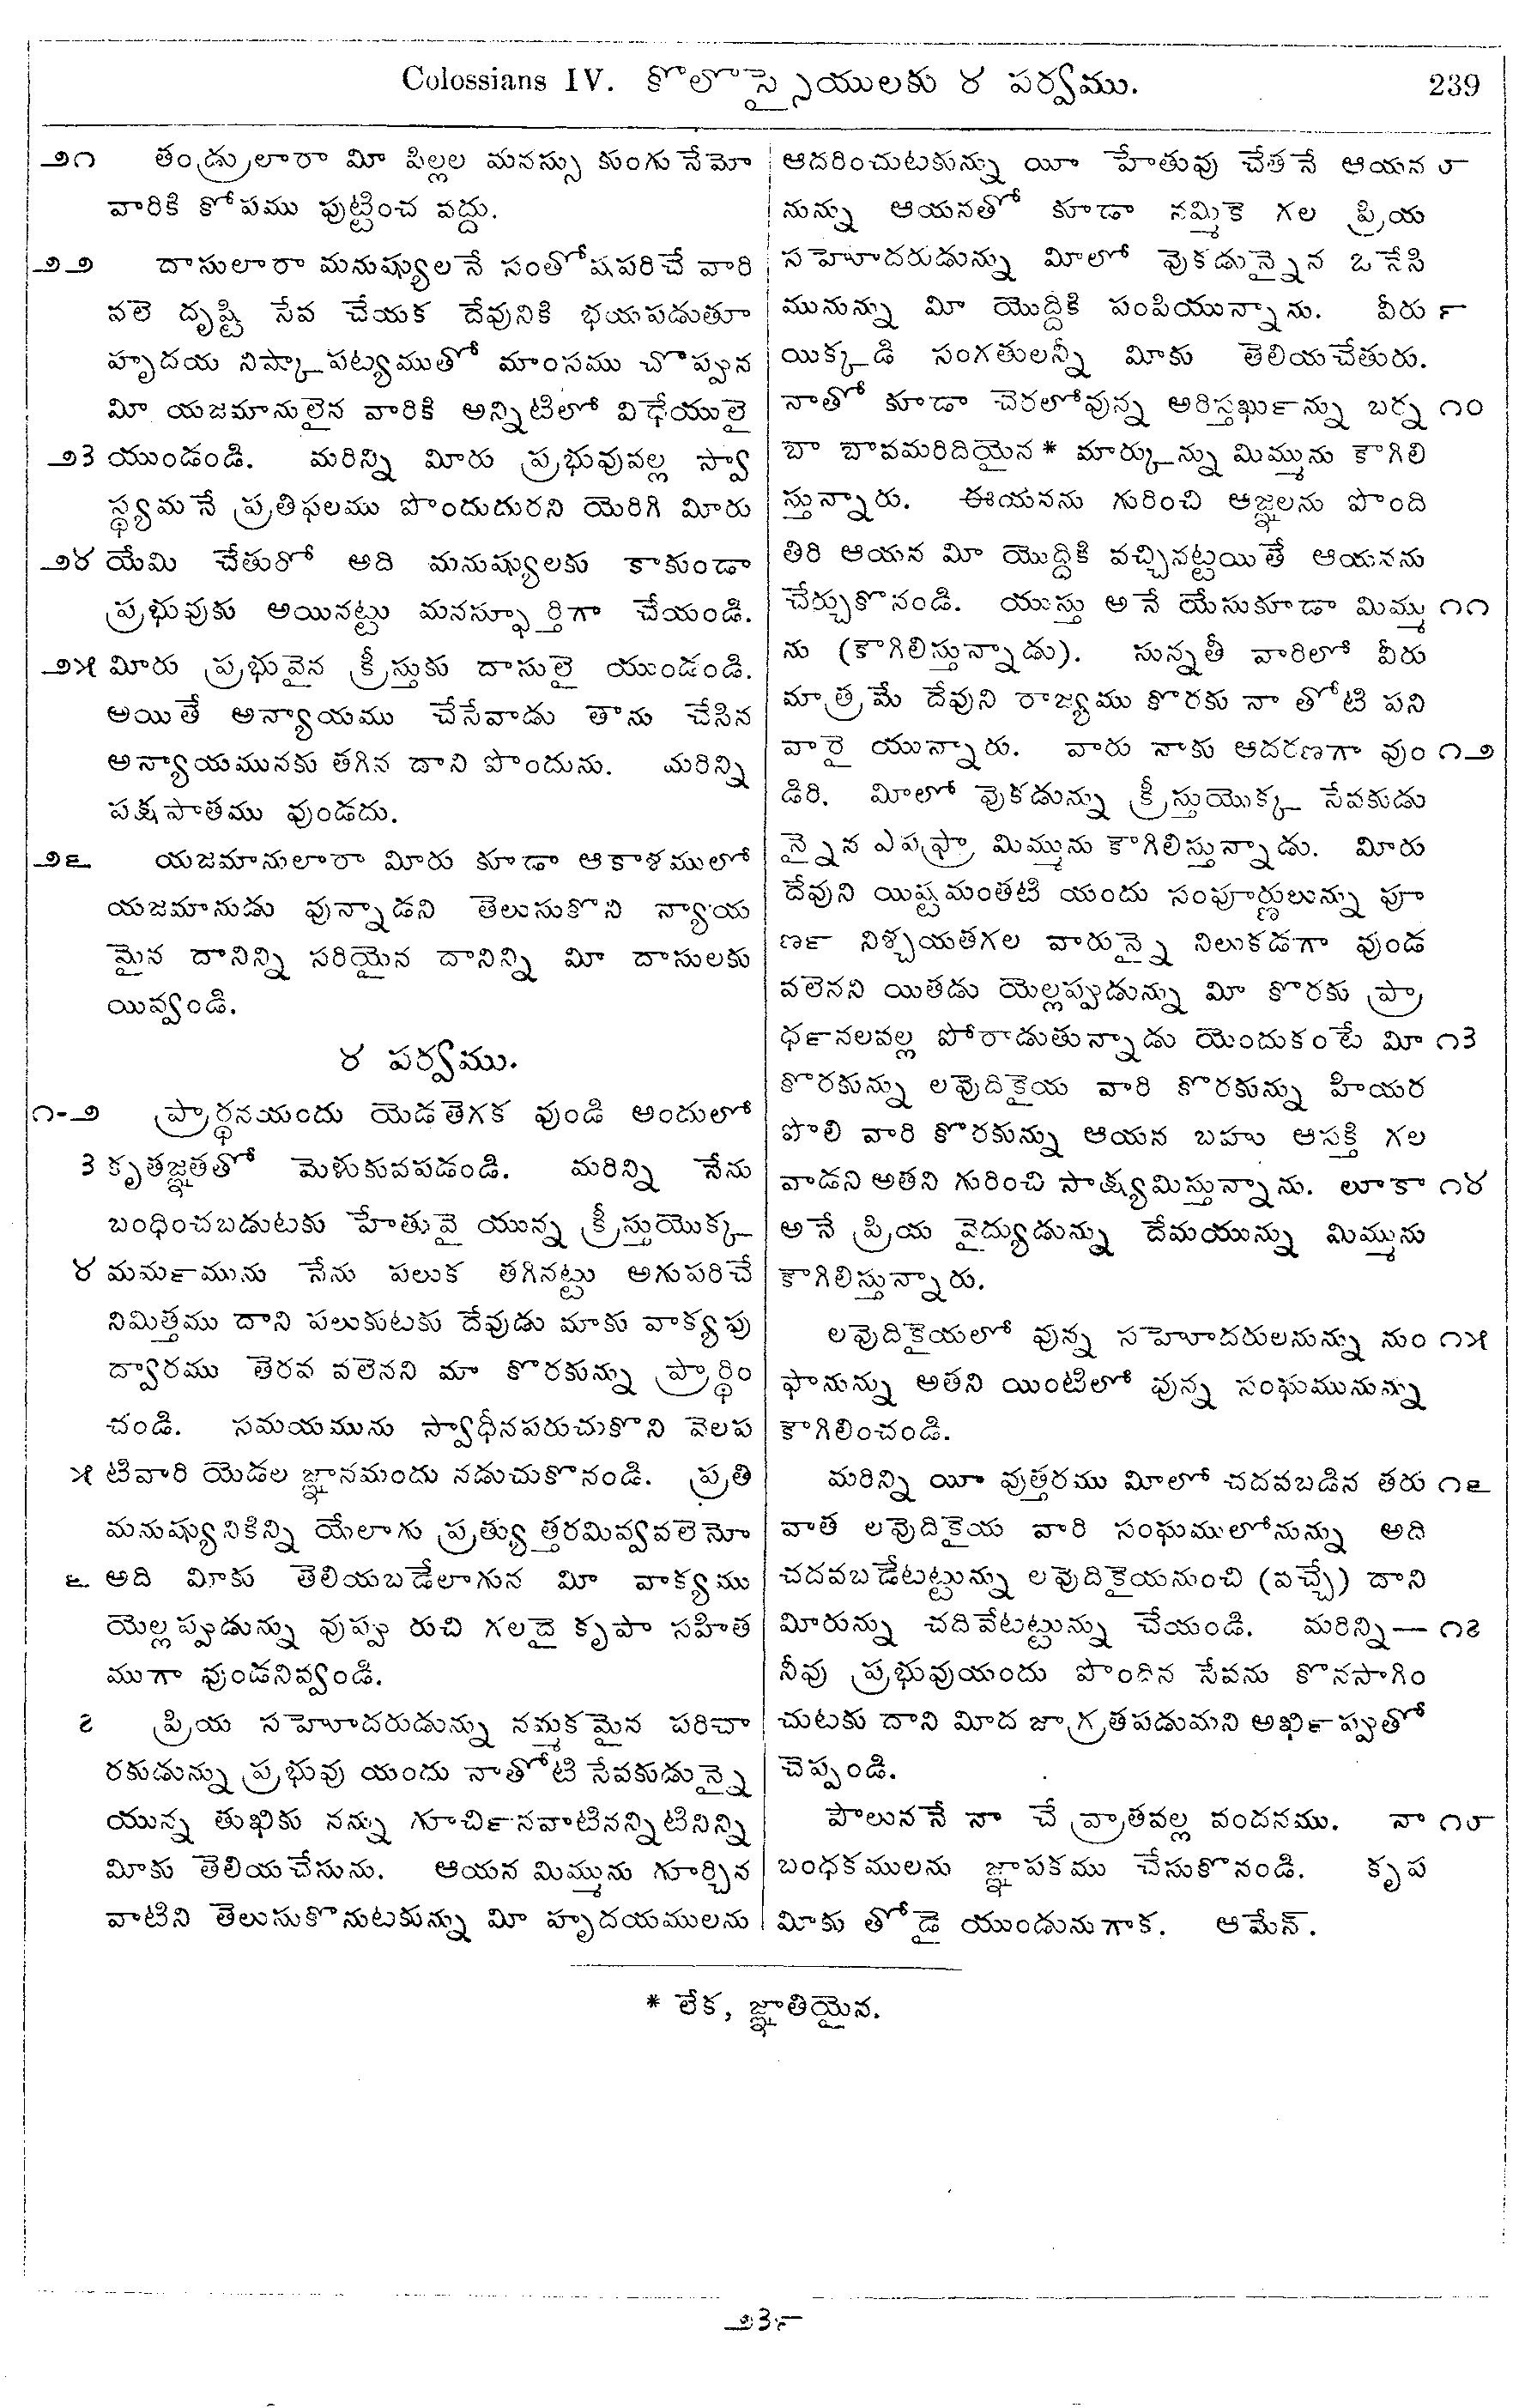 Colossians IV. కొలొస్సైయులకు ౪ పర్వము. 239
౨౧ తండ్రులారా మీ పిల్లల మనస్సు కుంగు నేమో
వారికి కోపము పుట్టించ వద్దు.
౨౨ దాసులారా మనుష్యులనే సంతోషపరిచే వారి
వలె దృష్టి సేవ చేయక దేవునికి భయపడుతూ
హృదయ నిష్కాపట్యముతో మాంసము చొప్పున
మీ యజమానులైన వారికి అన్నిటిలో విధేయులై
౨౩ యుండండి. మరిన్ని మీరు ప్రభువువల్ల స్వా
స్థ్యమనే ప్రతిఫలము పొందుదురని యెరిగి మీరు
౨౪ యేమి చేతురో అది మనుష్యులకు కాకుండా
ప్రభువుకు అయినట్టు మనస్ఫూర్తిగా చేయండి.
౨౫ మీరు ప్రభువైన క్రీస్తుకు దాసులై యుండండి.
అయితే అన్యాయము చేసేవాడు తాను చేసిన
అన్యాయమునకు తగిన దాని పొందును. మరిన్ని
పక్షపాతము వుండదు.
౨౬ యజమానులారా మీరు కూడా ఆకాశములో
యజమానుడు వున్నాడని తెలుసుకొని న్యాయ
మైన దానిన్ని సరియైన దానిన్ని మీ దాసులకు
యివ్వండి.
౪ పర్వము.
౧-౨ ప్రార్థనయందు యెడతెగక వుండి అందులో
౩ కృతజ్ఞతతో మెళుకువపడండి. మరిన్ని నేను
బంధించబడుటకు హేతువై యున్న క్రీస్తుయొక్క
౪ మమ౯మును నేను పలుక తగినట్టు అగుపరిచే
నిమిత్తము దాని పలుకుటకు దేవుడు మాకు వాక్యపు
ద్వారము తెరవ వలెనని మా కొరకున్ను ప్రార్థిం
చండి. సమయమును స్వాధీనపరుచుకొని వెలప
౫ టివారి యెడల జ్ఞానమందు నడుచుకొనండి. ప్రతి
మనుష్యునికిన్ని యేలాగు ప్రత్యుత్తరమివ్వవలెనో
౬ అది మీకు తెలియబడేలాగున మీ వాక్యము
యెల్లప్పుడున్ను వుప్పు రుచి గలదై కృపా సహిత
ముగా వుండనివ్వండి.
౭ ప్రియ సహోదరుడున్ను నమ్మకమైన పరిచా
రకుడున్ను ప్రభువు యందు నాతోటి సేవకుడున్నై
యున్న తుఖికు నన్ను గూచి౯నవాటినన్నిటినిన్ని
మీకు తెలియచేసును. ఆయన మిమ్మును గూర్చిన
వాటిని తెలుసుకొనుటకున్ను మీ హృదయములను
ఆదరించుటకున్ను యీ హేతువు చేతనే ఆయన ౮
నున్ను ఆయనతో కూడా నమ్మికె గల ప్రియ
సహోదరుడున్ను మీలో వొకడున్నైన ఒనేసి
మునున్ను మీ యొద్దికి పంపియున్నాను. వీరు ౯
యిక్కడి సంగతులన్నీ మీకు తెలియచేతురు.
నాతో కూడా చెరలోవున్న అరిస్తఖు౯న్ను బర్న ౧౦
బా బావమరిదియైన* మార్కున్ను మిమ్మును కౌగిలి
స్తున్నారు. ఈయనను గురించి ఆజ్ఞలను పొంది
తిరి ఆయన మీ యొద్దికి వచ్చినట్టయితే ఆయనను
చేర్చుకొనండి. యుస్తు అనే యేసుకూడా మిమ్మ ౧౧
ను (కౌగిలిస్తున్నాడు). సున్నతీ వారిలో వీరు
మాత్రమే దేవుని రాజ్యము కొరకు నా తోటి పని
వారై యున్నారు. వారు నాకు ఆదరణగా వుం ౧౨
డిరి. మీలో వొకడున్ను క్రీస్తుయొక్క సేవకుడు
న్నైన ఎపఫ్రా మిమ్మును కౌగిలిస్తున్నాడు. మీరు
దేవుని యిష్టమంతటి యందు సంపూర్ణులున్ను పూ
ణ౯ నిశ్చయతగల వారున్నై నిలుకడగా వుండ
వలెనని యితడు యెల్లప్పుడున్ను మీ కొరకు ప్రా
ధ౯నలవల్ల పోరాడుతున్నాడు యెందుకంటే మీ ౧౩
కొరకున్ను లవుదికైయ వారి కొరకున్ను హియర
పొలి వారి కొరకున్ను ఆయన బహు ఆసక్తి గల
వాడని అతని గురించి సాక్ష్యమిస్తున్నాను. లూకా ౧౪
అనే ప్రియ వైద్యుడున్ను దేమయున్ను మిమ్మును
కౌగిలిస్తున్నారు.
లవుదికైయలో వున్న సహోదరులనున్ను నుం ౧౫
ఫానున్ను అతని యింటిలో వున్న సంఘమునున్ను
కౌగిలించండి.
మరిన్ని యీ వుత్తరము మీలో చదవబడిన తరు ౧౬
వాత లవుదికైయ వారి సంఘములోనున్ను అది
చదవబడేటట్టున్ను లవుదికైయనుంచి (వచ్చే) దాని
మీరున్ను చదివేటట్టున్ను చేయండి. మరిన్ని— ౧౭
నీవు ప్రభువుయందు పొందిన సేవను కొనసాగిం
చుటకు దాని మీద జాగ్రతపడుమని అఖి౯ప్పుతో
చెప్పండి.
పౌలుననే నా చే వ్రాతవల్ల వందనము. నా ౧౮
బంధకములను జ్ఞాపకము చేసుకొనండి. కృప
మీకు తోడై యుండునుగాక. ఆమేన్.
* లేక, జ్ఞాతియైన.
౨౩౯